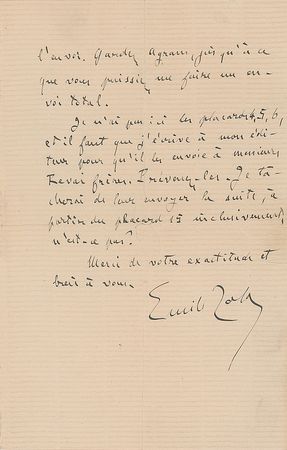 l'envoi. Gardez Agram, jusqu'à ce
que vous puissiez me faire un en-
voi total.
Je n'ai pas ici les placards 4, 5, 6,
et il faut que j'écrive à mon édi-
teur pour qu'il les envoie à messieurs
Revai frères. Prévenez-les. Je tâ-
cherai de leur envoyer la suite, à
partir du placard 15 inclusivement,
n'est-ce pas?
Merci de votre exactitude et
bien à vous.
Emile Zola